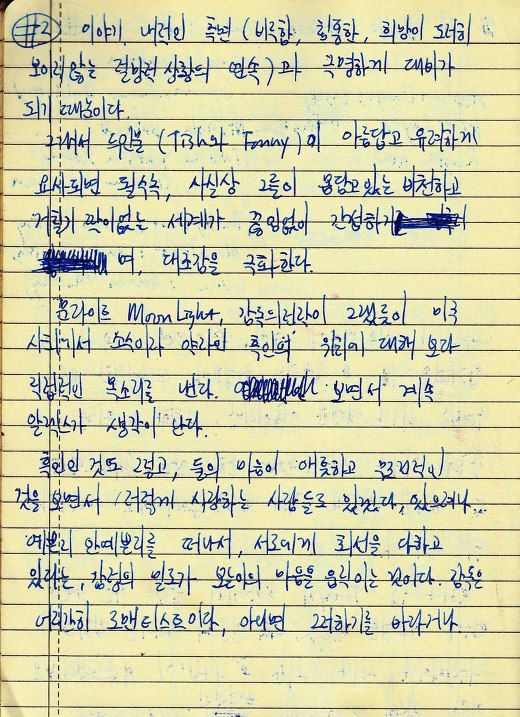 #2) 이야기 내적인 측면 (비극함, 흉흉함, 희망이 도저히
보이지 않는 절망적 상황의 연속) 과 극명하게 대비가
되기 때문이다.
그래서 두인물 (Tish와 Fonny) 이 아름답고 유려하게
묘사되면 될수록, 사실상 그들이 몸담고 있는 비천하고
거칠기 짝이없는 세계가 끊임없이 간섭하
며, 대조감을 극화한다.
문라이트 Moonlight, 감독의 전작이 그랬듯이 미국
사회에서 소수이자 약자인 흑인의 위치에 대해 보다
직접적인 목소리를 낸다. 보면서 계속
생각이 난다.
흑인인 것도 그렇고, 둘의 마음이 애틋하고
것을 보면서 저렇게 사랑하는 사람들도 있겠다, 있으려나..
예쁜지 안예쁜지를 떠나서, 서로에게 최선을 다하고
있다는, 감정의 보는이의 마음을 움직이는 것이다. 감독은
어지간히 로맨티스트이다, 아니면 그러하기를 바라거나.